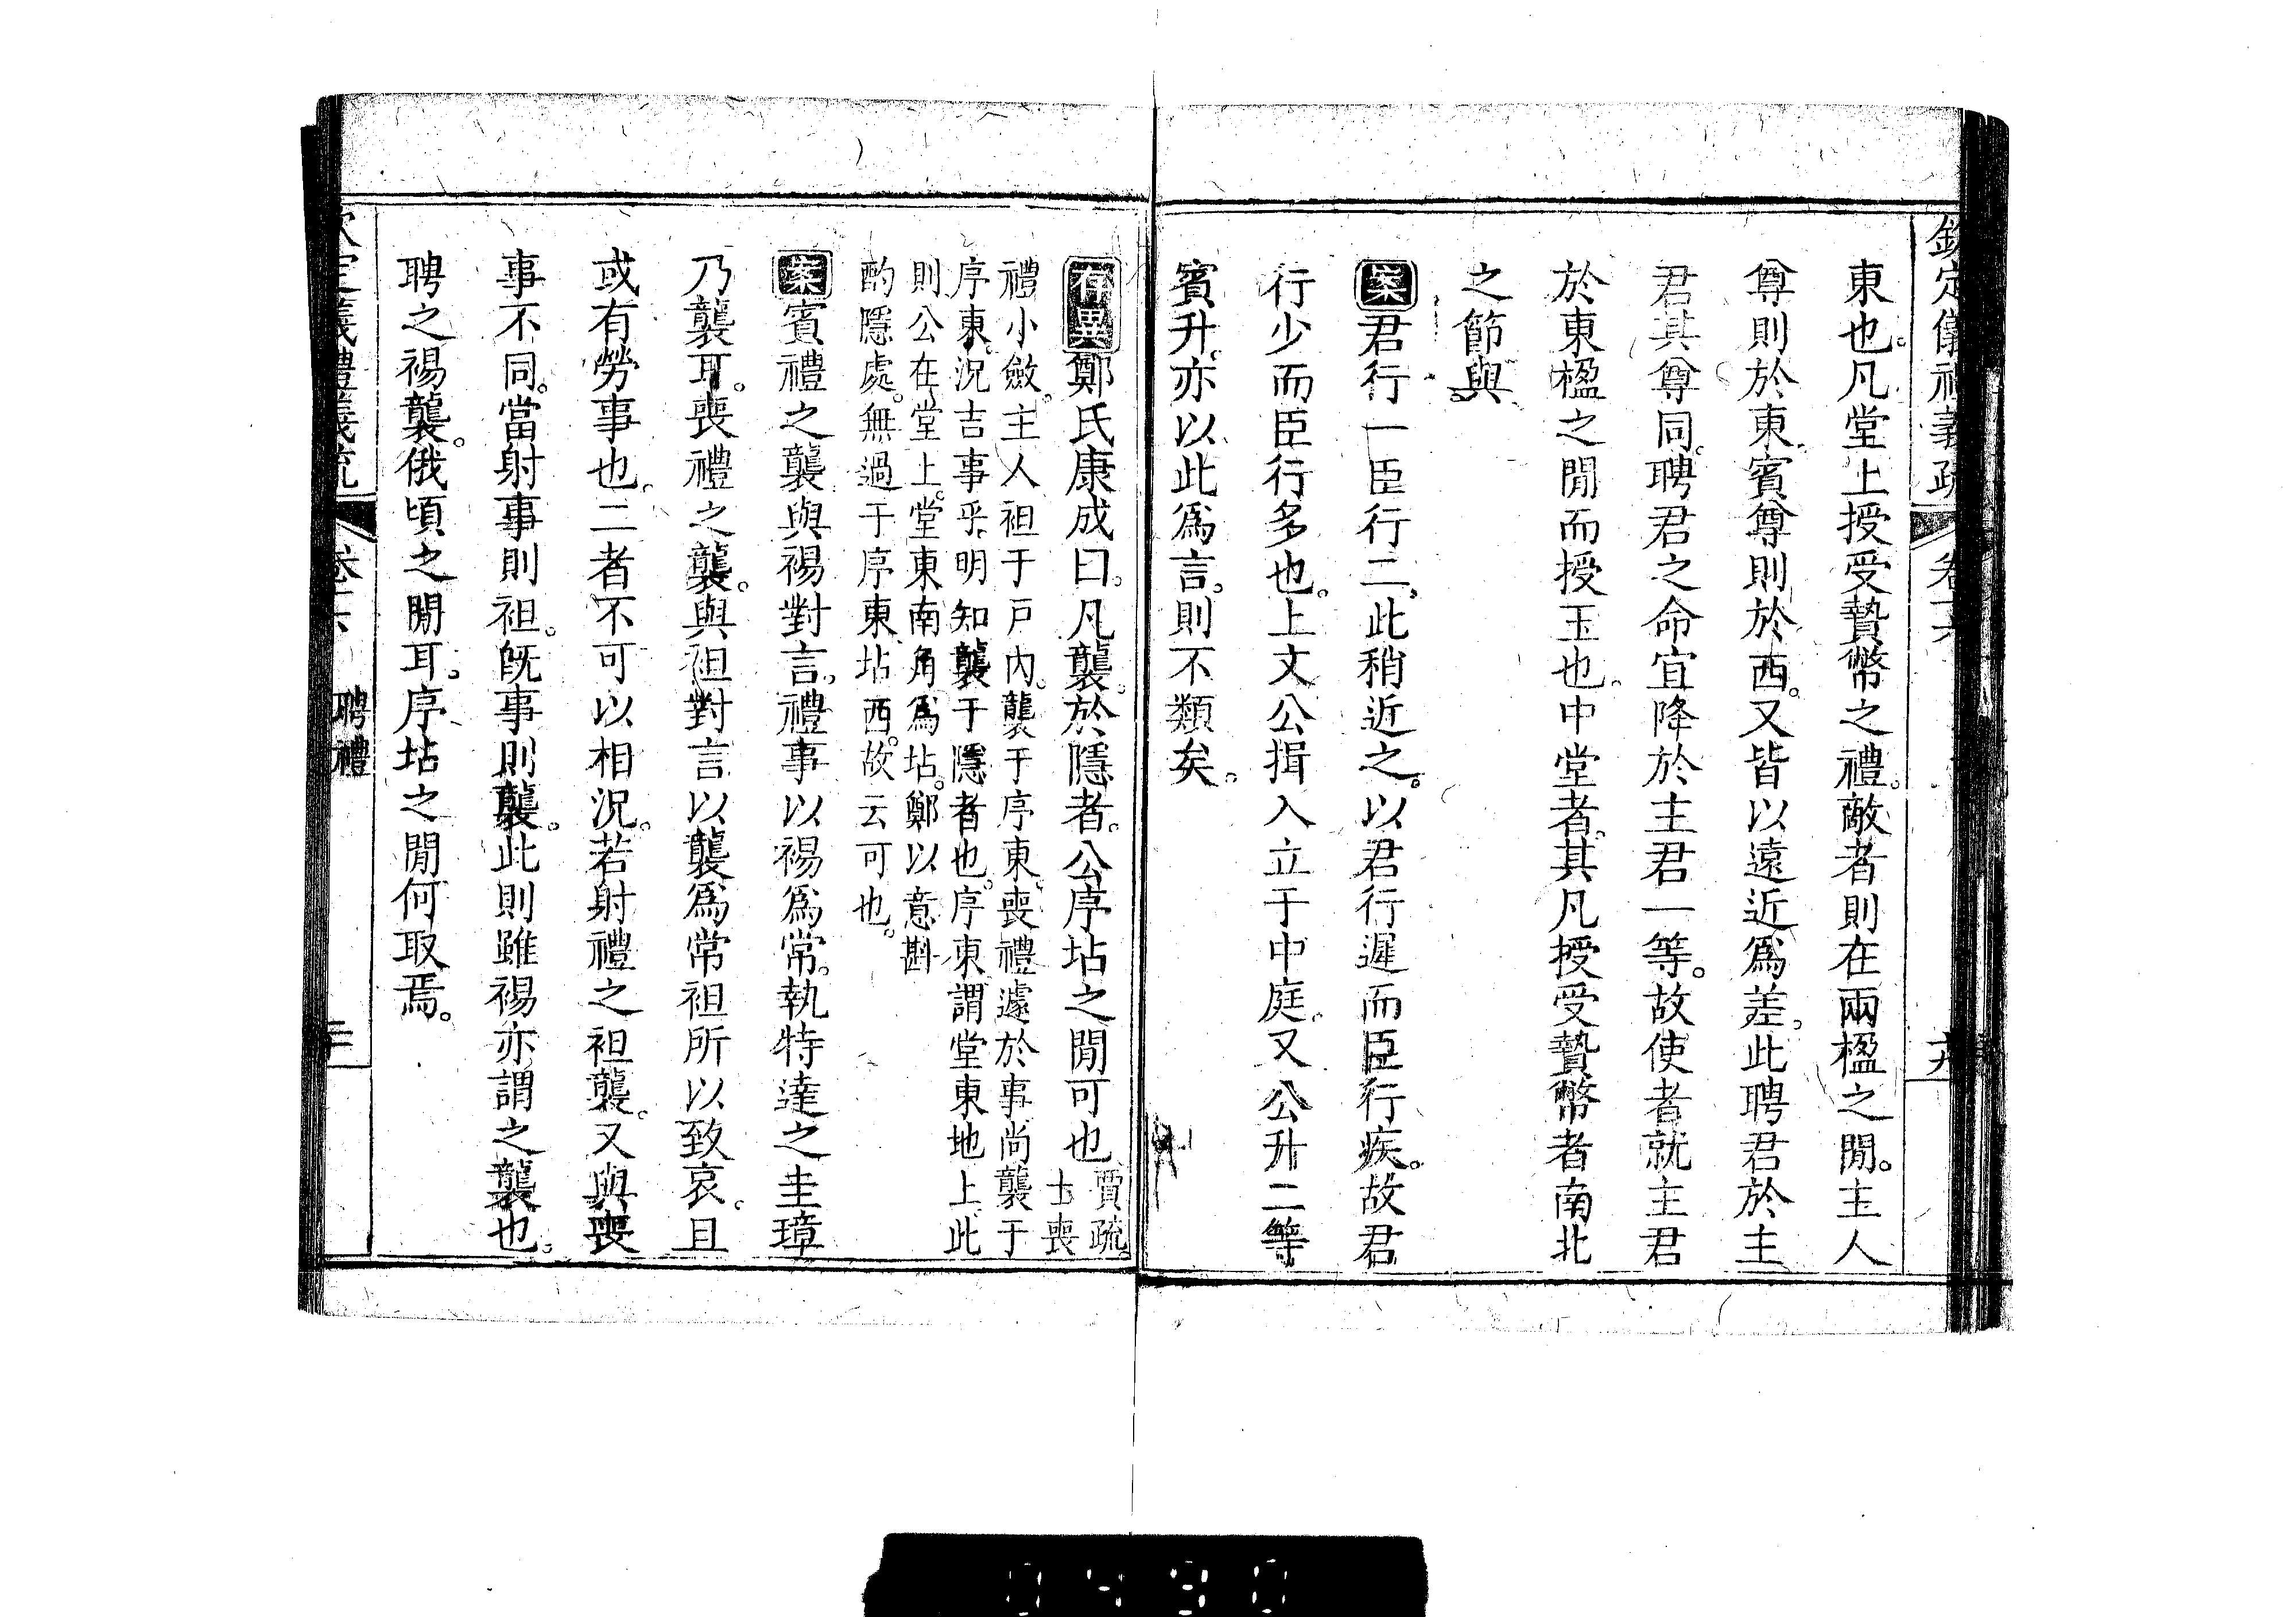 欽定儀禮義疏 卷十六 十九
東也。凡堂上授受贄幣之禮。敵者則在兩楹之閒。主人
尊則於東。賓尊則於西。又皆以遠近爲差。此聘君於主
君其尊同。聘君之命宜降於主君一等。故使者就主君
於東楹之閒而授玉也。中堂者。其凡授受贄幣者南北
之節與。
案君行一臣行二。此稍近之。以君行遲而臣行疾。故君
行少而臣行多也。上文公揖入立于中庭。又公升二等
賓升。亦以此爲言。則不類矣。
存異鄭氏康成曰。凡襲於隱者。公序坫之閒可也
賈疏。
士喪
禮小斂。主人袒于戸內。襲于序東。喪禮遽於事尚襲于
序東。況吉事乎。明知襲于隱者也。序東。謂堂東地上。此
則公在堂上。堂東南角爲坫。鄭以意斟
酌隱處。無過于序東。坫西。故云可也。
案賓禮之襲與裼對言。禮事以裼爲常。執特達之圭璋
乃襲耳。喪禮之襲。與袒對言以襲爲常袒所以致哀。且
或有勞事也。二者不可以相況。若射禮之袒襲。又與喪
事不同。當射事則袒。旣事則襲。此則雖裼亦謂之襲也。
聘之裼襲。俄頃之閒耳。序坫之閒何取焉。
聘禮
0490